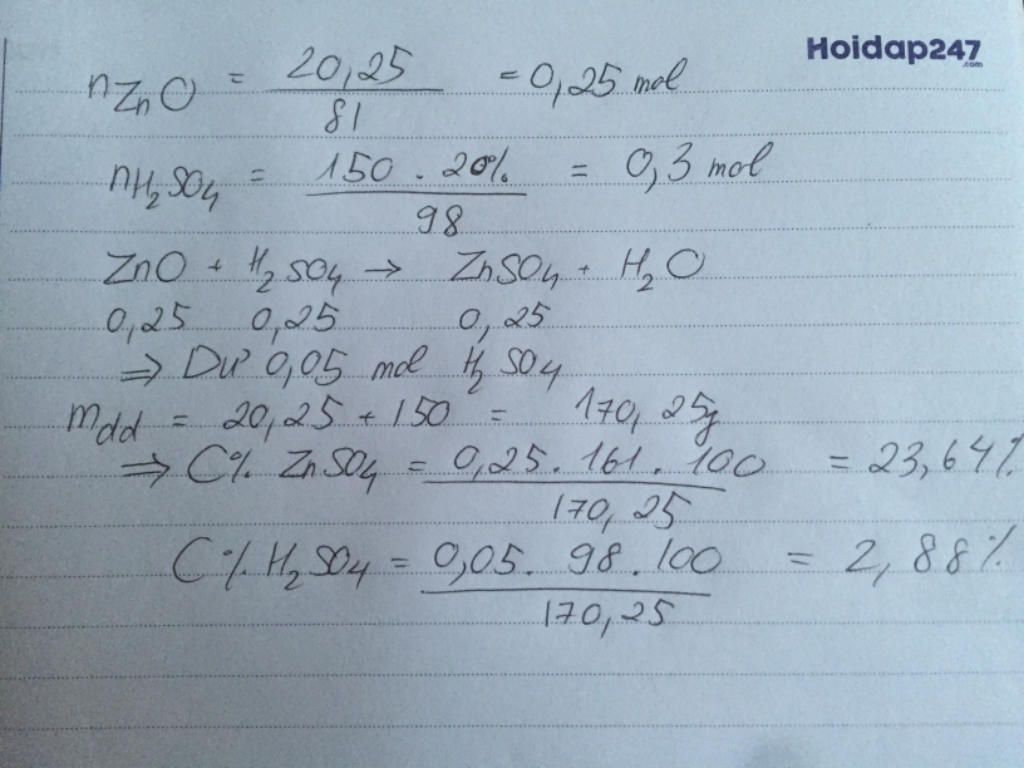 Hoidap247
.com
nZnO = 20,25 / 81 = 0,25 mol
nH₂SO₄ = 150 . 20% / 98 = 0,3 mol
ZnO + H₂SO₄ → ZnSO₄ + H₂O
0,25 0,25 0,25
⇒ Dư 0,05 mol H₂SO₄
mdd = 20,25 + 150 = 170,25g
⇒ C% ZnSO₄ = 0,25 . 161 . 100 / 170,25 = 23,64%
C% H₂SO₄ = 0,05 . 98 . 100 / 170,25 = 2,88%